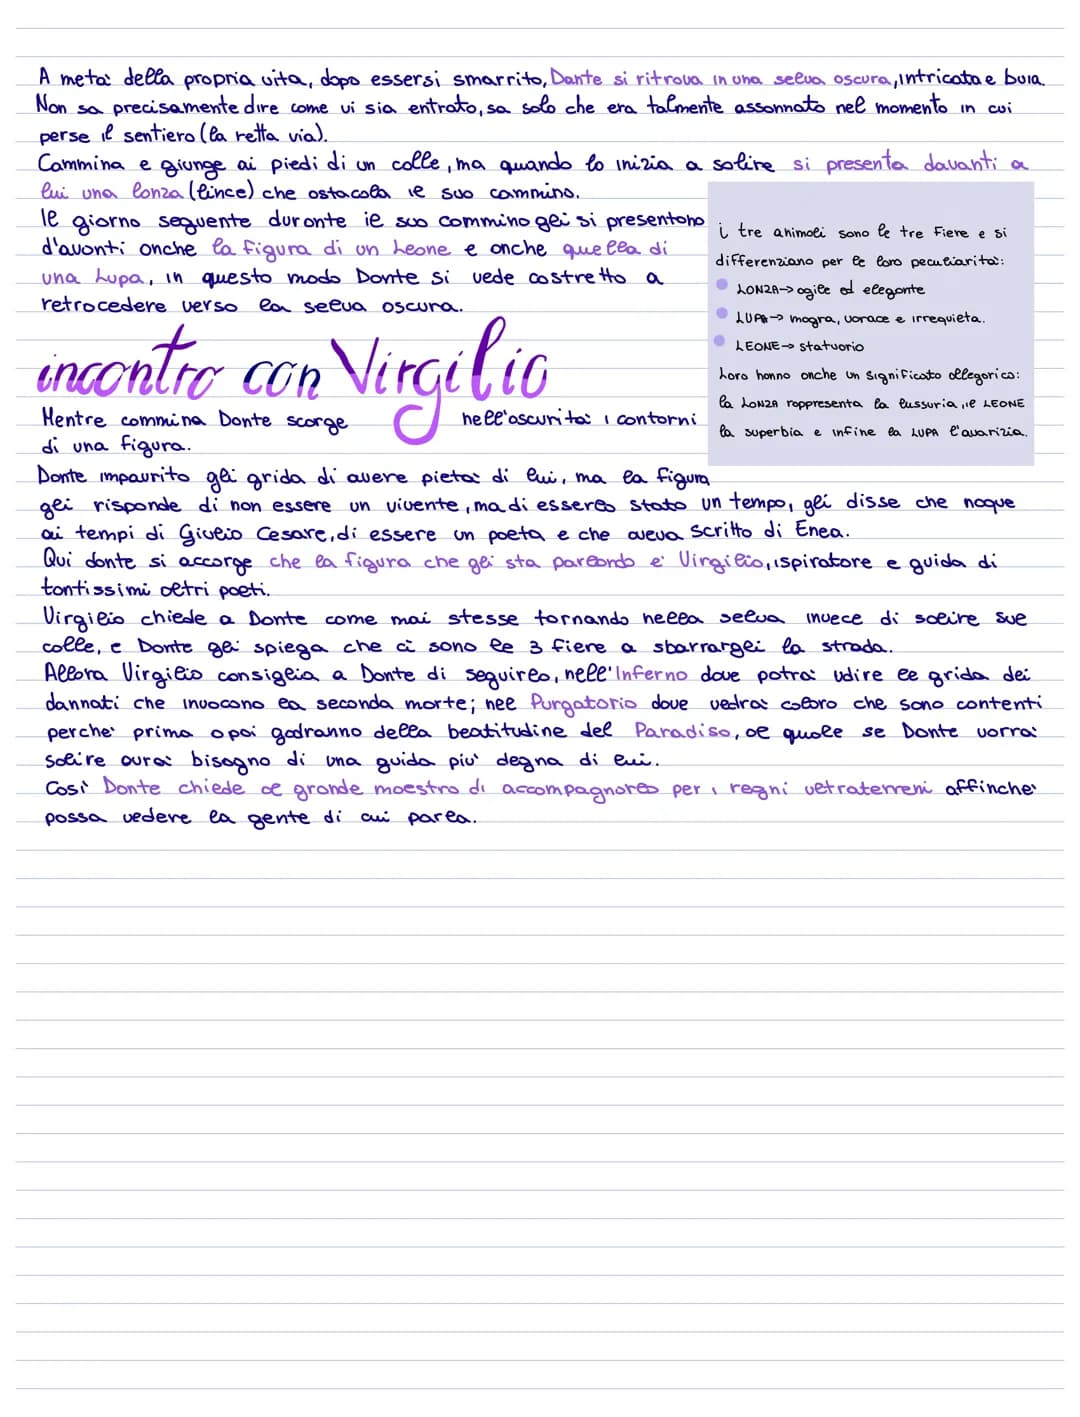 A metà della propria vita, dopo essersi smarrito, Dante si ritrova in una selva oscura, intricata e buia.
Non sa precisamente dire come vi sia entrato, sa solo che era talmente assonnato nel momento in cui
perse il sentiero (la retta via).
Cammina e giunge ai piedi di un colle, ma quando lo inizia a salire si presenta davanti a
lui una lonza (lince) che ostacola il suo cammino.
Il giorno seguente durante il suo cammino gli si presentano
d'avanti anche la figura di un Leone e anche quella di
una Lupa, in questo modo Dante si vede costretto a
retrocedere verso la selva oscura.
i tre animali sono le tre Fiere e si
differenziano per le loro peculiarità:
LONZA→ agile ed elegante
LUPA→ magra, vorace e irrequieta.
LEONE→ statuario
Loro hanno anche un significato allegorico:
la LONZA rappresenta la lussuria, il LEONE
la superbia e infine la LUPA l'avarizia.
incontro con Virgilio
Mentre cammina Dante scorge nell'oscurità i contorni
di una figura.
Dante impaurito gli grida di avere pietà di lui, ma la figura
gli risponde di non essere un vivente, ma di esserlo stato un tempo, gli disse che naque
ai tempi di Giulio Cesare, di essere un poeta e che aveva scritto di Enea.
Qui dante si accorge che la figura che gli sta parlando è Virgilio, ispiratore e guida di
tantissimi altri poeti.
Virgilio chiede a Dante come mai stesse tornando nella selva invece di salire sul
colle, e Dante gli spiega che ci sono le 3 fiere a sbarrargli la strada.
Allora Virgilio consiglia a Dante di seguirlo, nell'Inferno dove potrà udire le grida dei
dannati che invocano la seconda morte; nel Purgatorio dove vedrà coloro che sono contenti
perchè prima o poi godranno della beatitudine del Paradiso, al quale se Dante vorrà
salire avrà bisogno di una guida più degna di lui.
Così Dante chiede al grande maestro di accompagnarlo per i regni ultraterreni affinchè
possa vedere la gente di cui parla.